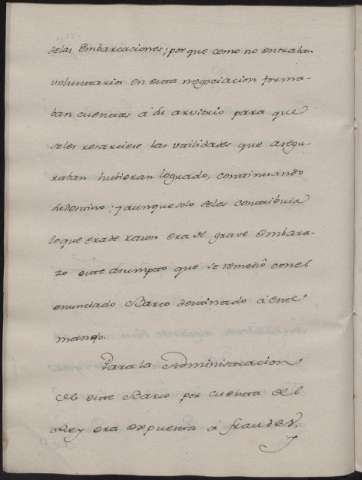 de las Embarcaciones; por que como no entraban
voluntarios en esta negociacion forma-
ban cuentas á su arvitrio para que
se les resarciese las utilidades que asegu-
raban hubieran logrado, continuando
su destino: y aunque solo se les contribuia
lo que era de razon era de grave embara-
zo este asumpto que se remedió con el
enunciado Barco destinado á este
manejo.
Para la Administracion
de este Barco por cuenta de el
Rey era expuesta á fraudes,